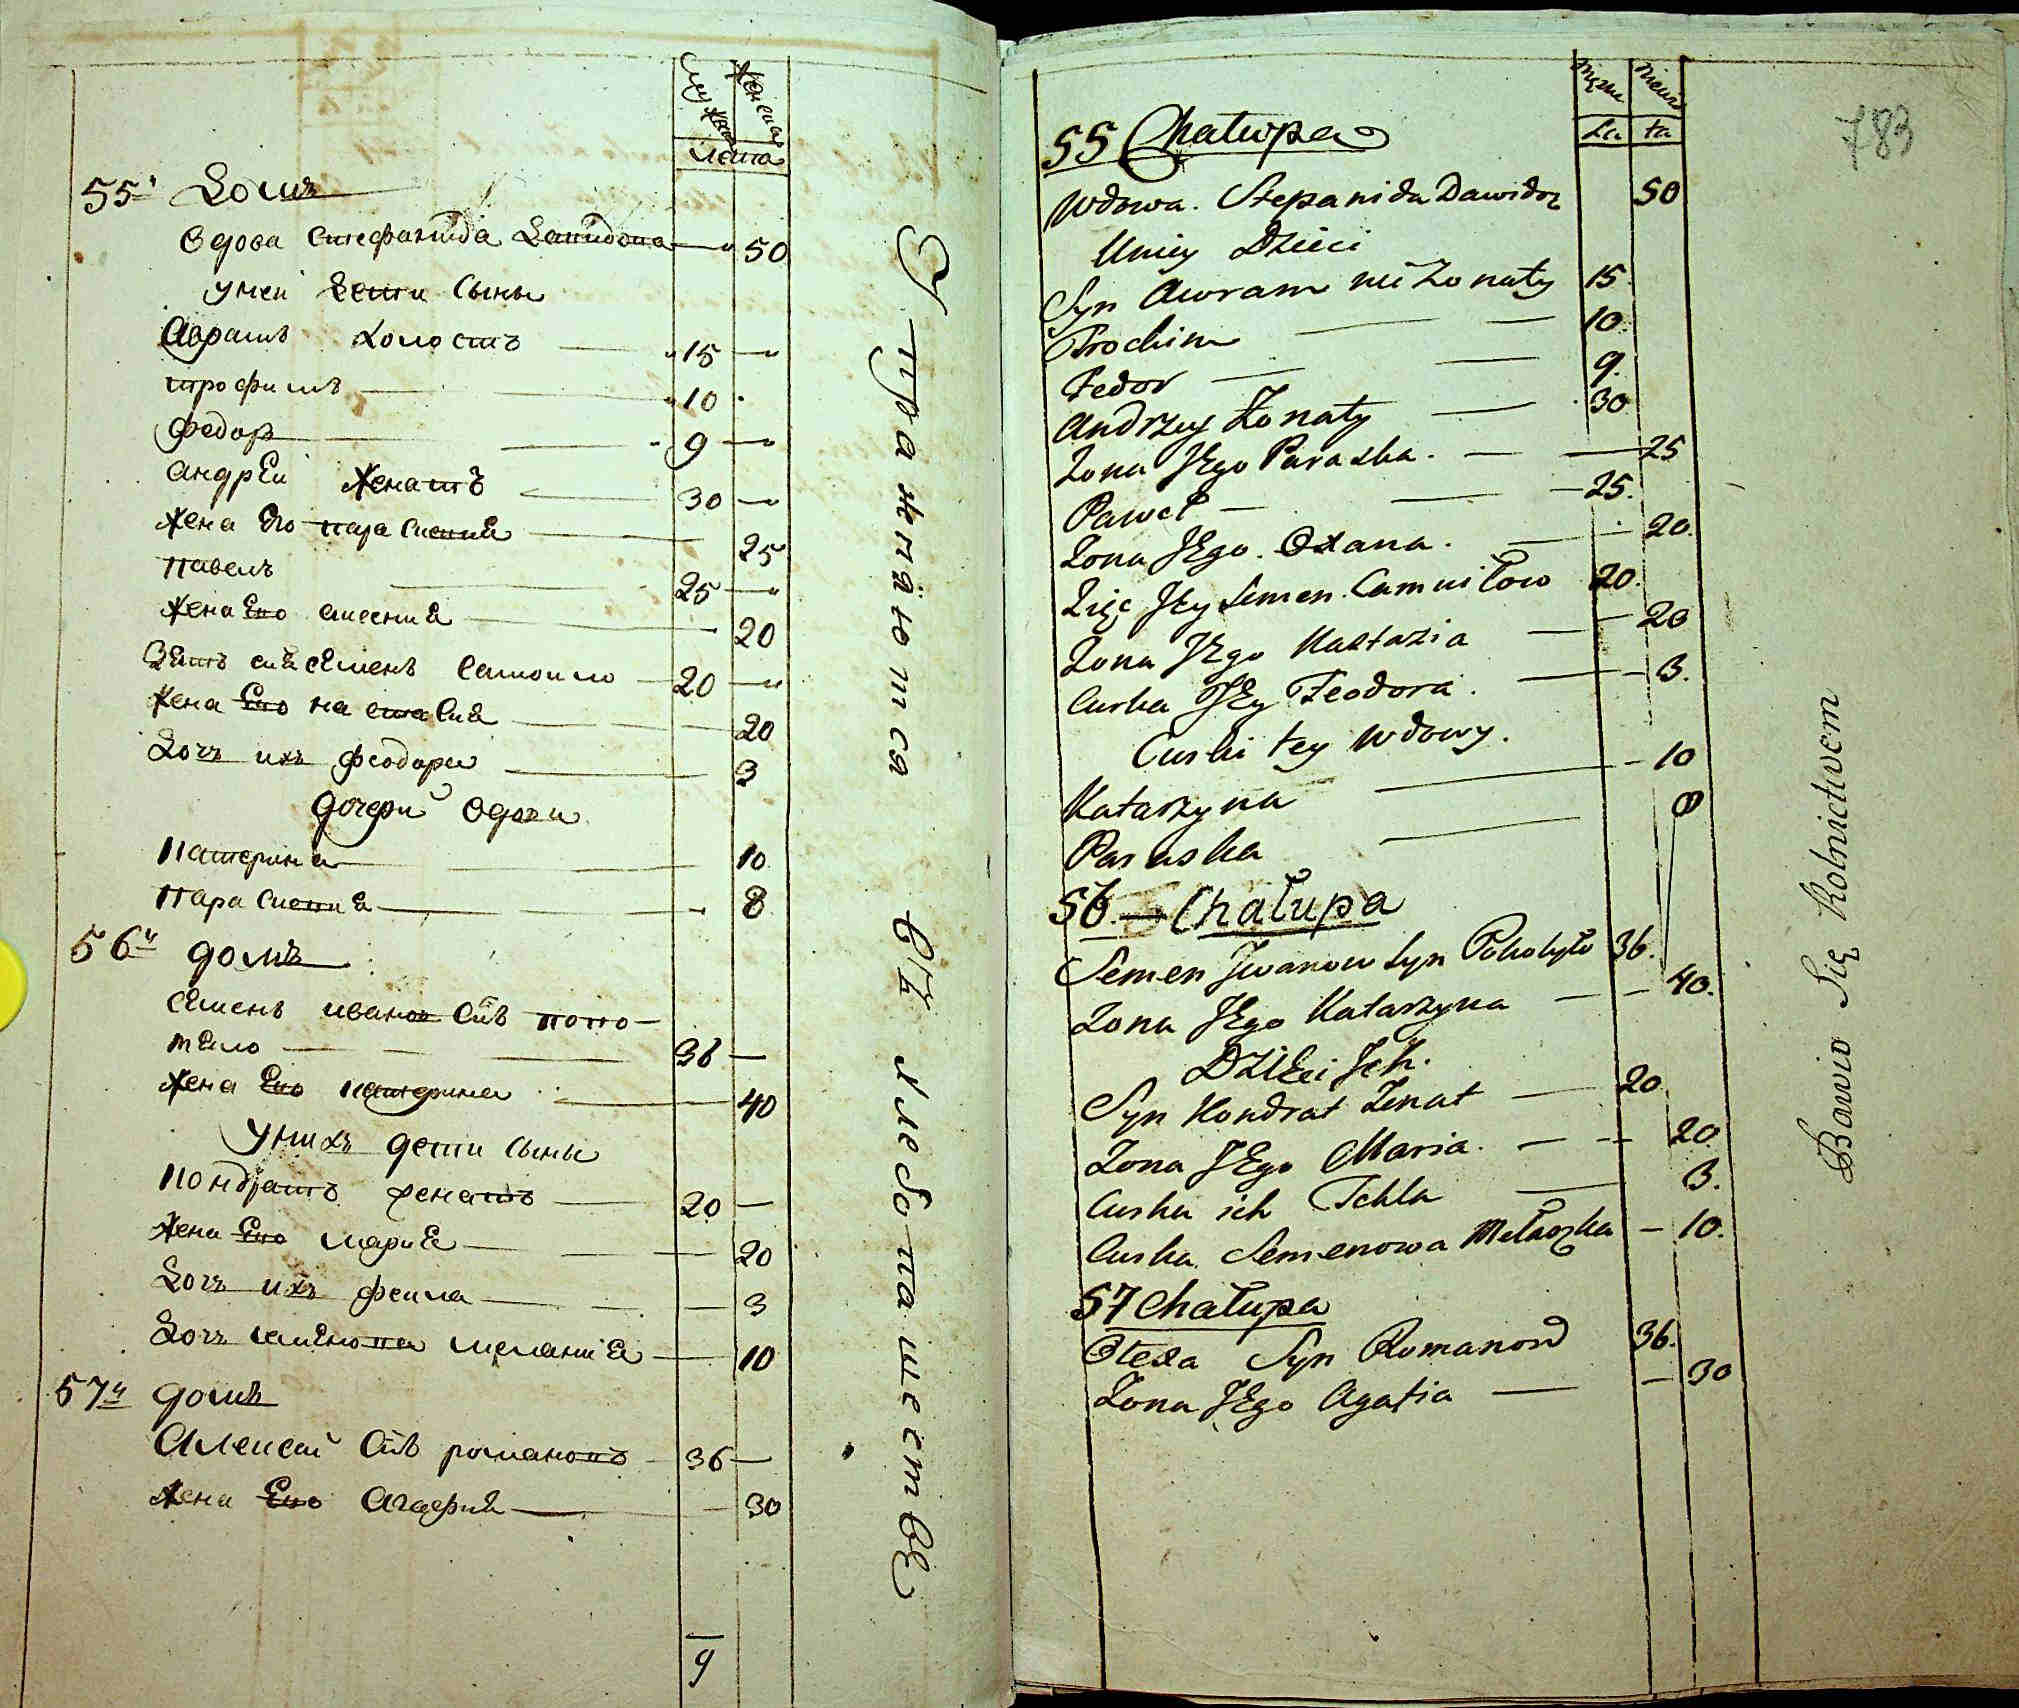 мужеска
женска
лета
55й Домъ
Вдова Стефанида Давидова 50
у ней дети сыны
Аврамъ холостъ 15
трофимъ 10
федоръ 9
андрей женатъ 30
жена его параскевиа 25
павелъ 25
жена его 20
Зять Семенъ Самоило 20
жена его настасиа 20
Дочъ ихъ феодора 3
дочери вдови
катерина 10
параскевиа 8
56й домъ
Семенъ иванов сынъ пого-
тело 36
жена его катерина 40
у нихъ дети сыны
кондратъ женатъ 20
жена его мариа 20
Дочъ ихъ фекла 3
Дочъ семенова меланиа 10
57й домъ
Алексей сынъ романовъ 36
жена его Агафиа 30
9
Упражняются въ хлебопашестве
783
Męzne
Niewi
La ta
55 Chałupa
Wdowa. Stepanida Dawidoz 50
Uniey Dzieci
Syn Awram nie Zonaty 15
Trochim 10
Fedor 9
Andrzey Zonaty 30
Zona JEgo Paraska. 25
Paweł 25
Zona JEgo. Oxana. 20
Zięc JEy Semen. Samuiłow 20
Zona JEgo Nastazia 20
Curka JEy Feodora. 3
Curki tey Wdowy.
Katarzyna 10
Paraska 8
56 Chałupa
Semen Jwanow Syn Pohobyło 36
Zona JEgo Katarzyna 40
DZIEci Jch.
Syn Kondrat Zonat 20
Zona JEgo Maria. 20
Curka ich Tekla 3
Curka Semenowa Małaszka 10
57 Chałupa
Olexa Syn Romanow 36
Zona JEgo Agafia 30
Bawio Się Rolnictwem